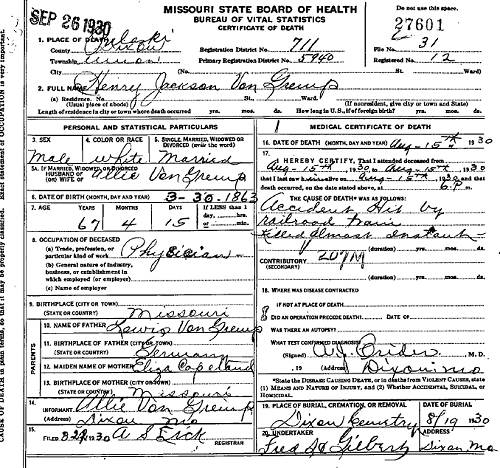 SEP 26 1930
MISSOURI STATE BOARD OF HEALTH
BUREAU OF VITAL STATISTICS
CERTIFICATE OF DEATH
Do not use this space.
27601
1. PLACE OF DEATH
County Pulaski
Registration District No. 711
File No. 31
Township
Primary Registration District No. 5940
Registered No. 12
City
No. St. Ward)
2. FULL NAME Henry Jackson Van Gremp
(a) Residence. No. St. Ward.
(Usual place of abode) (If nonresident, give city or town and State)
Length of residence in city or town where death occurred yrs. mos. ds. How long in U.S., if of foreign birth? yrs. mos. ds.
PERSONAL AND STATISTICAL PARTICULARS
3. SEX
4. COLOR OR RACE
5. SINGLE, MARRIED, WIDOWED OR DIVORCED (write the word)
Male white Married
5A. IF MARRIED, WIDOWED, OR DIVORCED
HUSBAND OF (OR) WIFE OF Allie Van Gremp
6. DATE OF BIRTH (MONTH, DAY AND YEAR) 3-30-1863
7. AGE YEARS MONTHS DAYS If LESS than 1 day, hrs. or min.
67 4 15
8. OCCUPATION OF DECEASED
(a) Trade, profession, or particular kind of work Physician
(b) General nature of industry, business, or establishment in which employed (or employer)
(c) Name of employer
9. BIRTHPLACE (CITY OR TOWN)
(STATE OR COUNTRY) Missouri
PARENTS
10. NAME OF FATHER Lewis Van Gremp
11. BIRTHPLACE OF FATHER (CITY OR TOWN)
(STATE OR COUNTRY) Germany
12. MAIDEN NAME OF MOTHER Eliza Copeland
13. BIRTHPLACE OF MOTHER (CITY OR TOWN)
(STATE OR COUNTRY) Missouri
14. INFORMANT Allie Van Gremp
(Address) Dixon Mo
15. FILED 1930 A S
REGISTRAR
MEDICAL CERTIFICATE OF DEATH
16. DATE OF DEATH (MONTH, DAY AND YEAR) Aug-15th 1930
17. I HEREBY CERTIFY, That I attended deceased from
Aug-15th, 1930, to Aug-15th, 1930
that I last saw h alive on Aug-15th, 1930, and that
death occurred, on the date stated above, at 6 P m.
THE CAUSE OF DEATH WAS AS FOLLOWS:
Accident Hit by
railroad train
Killed almost instant
(duration) yrs. mos. ds.
CONTRIBUTORY (SECONDARY) 207M
(duration) yrs. mos. ds.
18. WHERE WAS DISEASE CONTRACTED
IF NOT AT PLACE OF DEATH?
DID AN OPERATION PRECEDE DEATH? DATE OF
WAS THERE AN AUTOPSY?
WHAT TEST CONFIRMED DIAGNOSIS?
(Signed) M.D.
19 (Address) Dixon Mo
*State the DISEASE CAUSING DEATH, or in deaths from VIOLENT CAUSES, state (1) MEANS AND NATURE OF INJURY, and (2) whether ACCIDENTAL, SUICIDAL, or HOMICIDAL.
19. PLACE OF BURIAL, CREMATION, OR REMOVAL
DATE OF BURIAL
Dixon Cemetery 8/19 1930
20. UNDERTAKER
ADDRESS
Gilbert Dixon, Mo.
CAUSE OF DEATH in plain terms, so that it may be properly classified. Exact statement of OCCUPATION is very important.